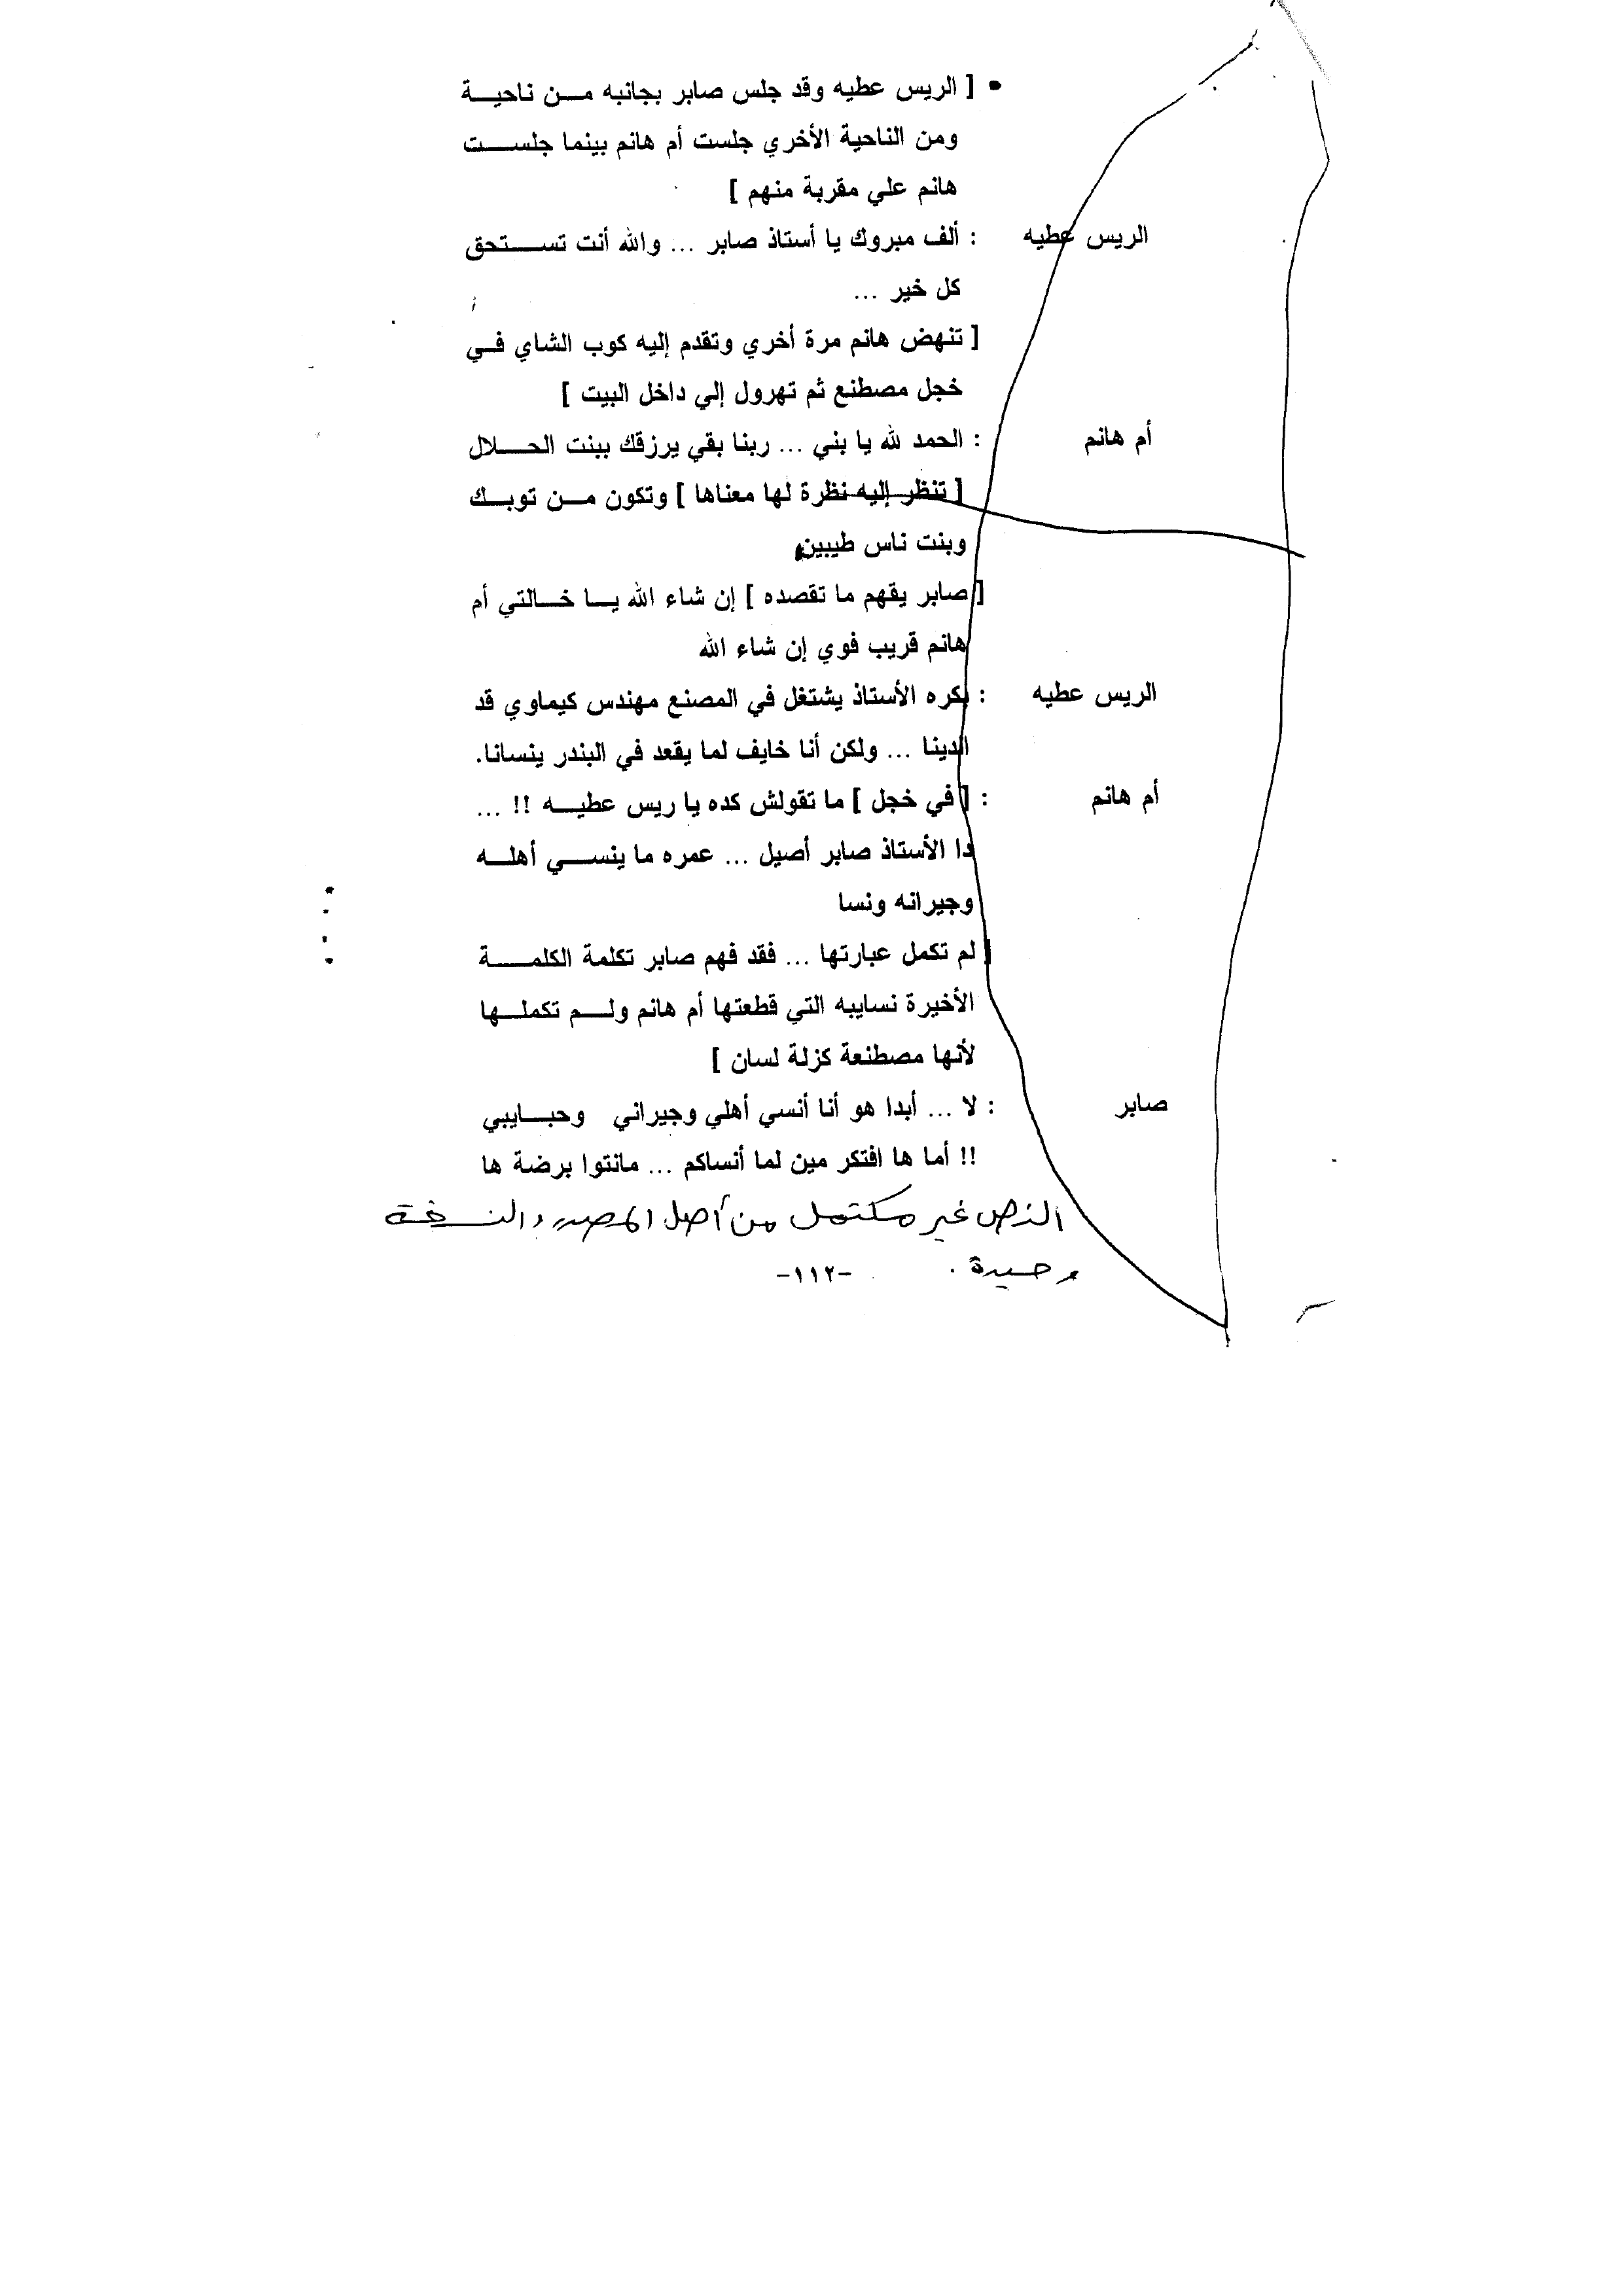 • [ الريس عطيه وقد جلس صابر بجانبه من ناحية
ومن الناحية الأخري جلست أم هانم بينما جلست
هانم علي مقربة منهم ]
الريس عطيه : ألف مبروك يا أستاذ صابر ... والله أنت تستحق
كل خير ...
[ تنهض هانم مرة أخري وتقدم إليه كوب الشاي في
خجل مصطنع ثم تهرول إلي داخل البيت ]
أم هانم : الحمد لله يا بني ... ربنا بقي يرزقك ببنت الحلال
[ تنظر إليه نظرة لها معناها ] وتكون من توبك
وبنت ناس طيبين
[ صابر يقهم ما تقصده ] إن شاء الله يا خالتي أم
هانم قريب قوي إن شاء الله
الريس عطيه : بكره الأستاذ يشتغل في المصنع مهندس كيماوي قد
الدينا ... ولكن أنا خايف لما يقعد في البندر ينسانا.
أم هانم : [ في خجل ] ما تقولش كده يا ريس عطيه !! ...
دا الأستاذ صابر أصيل ... عمره ما ينسي أهله
وجيرانه ونسا
[ لم تكمل عبارتها ... فقد فهم صابر تكلمة الكلمة
الأخيرة نسايبه التي قطعتها أم هانم ولم تكملها
لأنها مصطنعة كزلة لسان ]
صابر : لا ... أبدا هو أنا أنسي أهلي وجيراني وحبايبي
!! أما ها افتكر مين لما أنساكم ... مانتوا برضة ها
النص غير مكتمل من أصل المصدر والنسخة
وحيدة .
-١١٢-